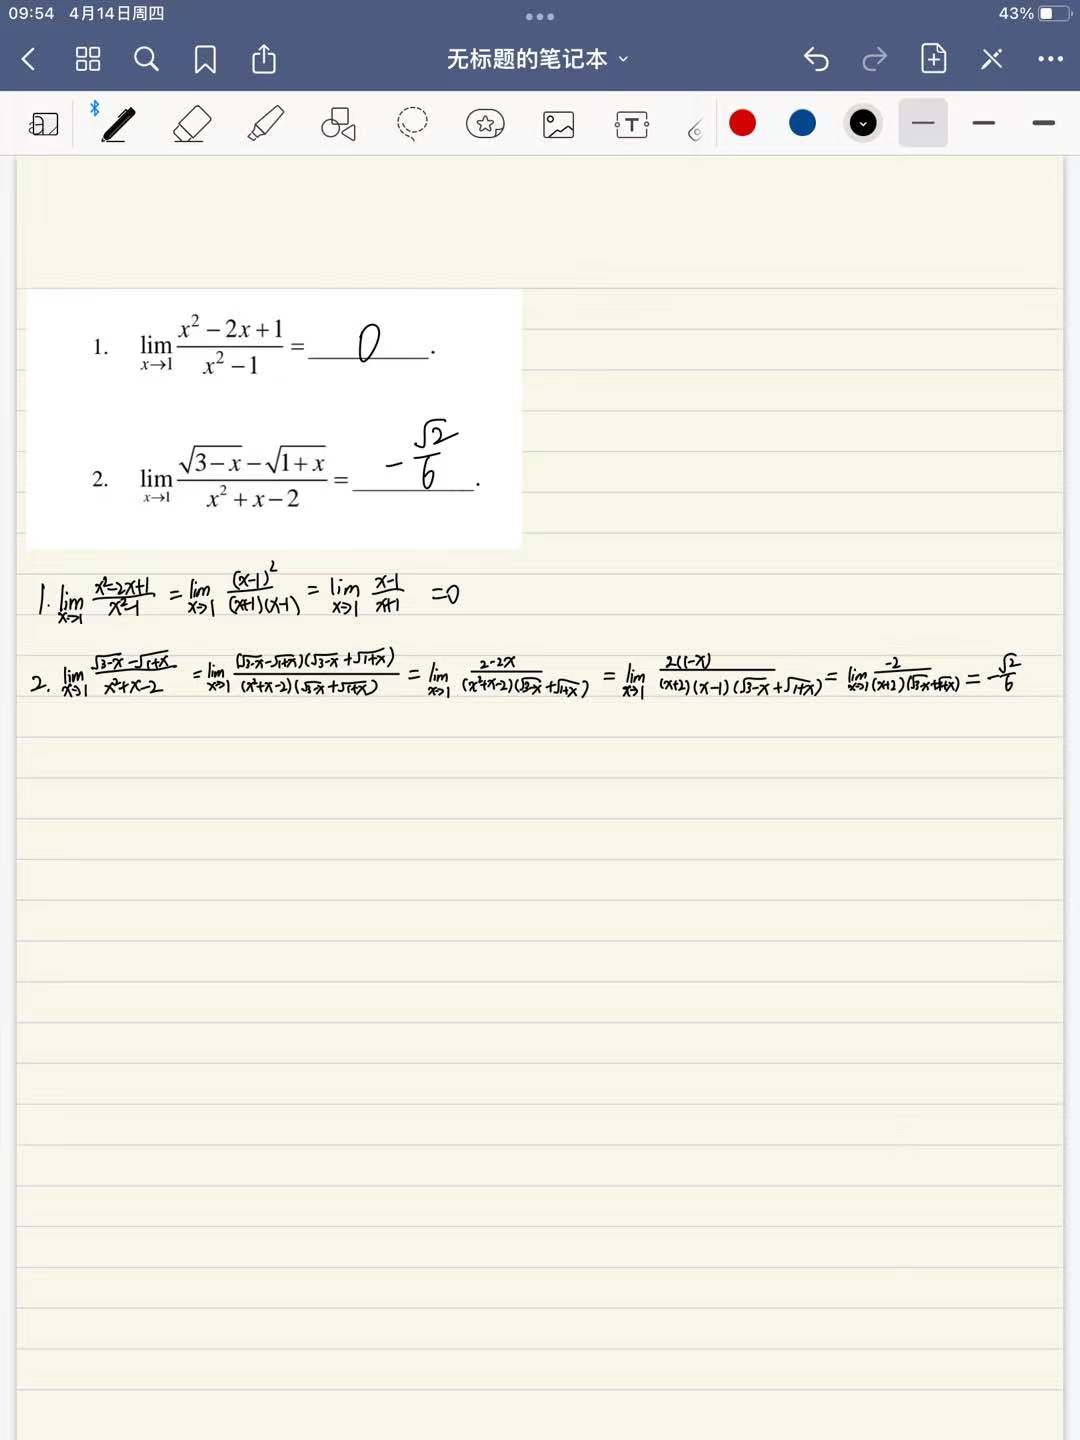 09:54 4月14日周四 43%
无标题的笔记本
1. lim x→1 (x² − 2x + 1)/(x² − 1) = 0.
2. lim x→1 (√(3−x) − √(1+x))/(x² + x − 2) = −√2/6.
1. lim x→1 (x²−2x+1)/(x²−1) = lim x→1 (x−1)²/((x+1)(x−1)) = lim x→1 (x−1)/(x+1) = 0
2. lim x→1 (√(3−x) − √(1+x))/(x²+x−2) = lim x→1 ((√(3−x) − √(1+x))(√(3−x) + √(1+x)))/((x²+x−2)(√(3−x) + √(1+x))) = lim x→1 (2−2x)/((x²+x−2)(√(3−x) + √(1+x))) = lim x→1 2(1−x)/((x+2)(x−1)(√(3−x) + √(1+x))) = lim x→1 −2/((x+2)(√(3−x) + √(1+x))) = −√2/6